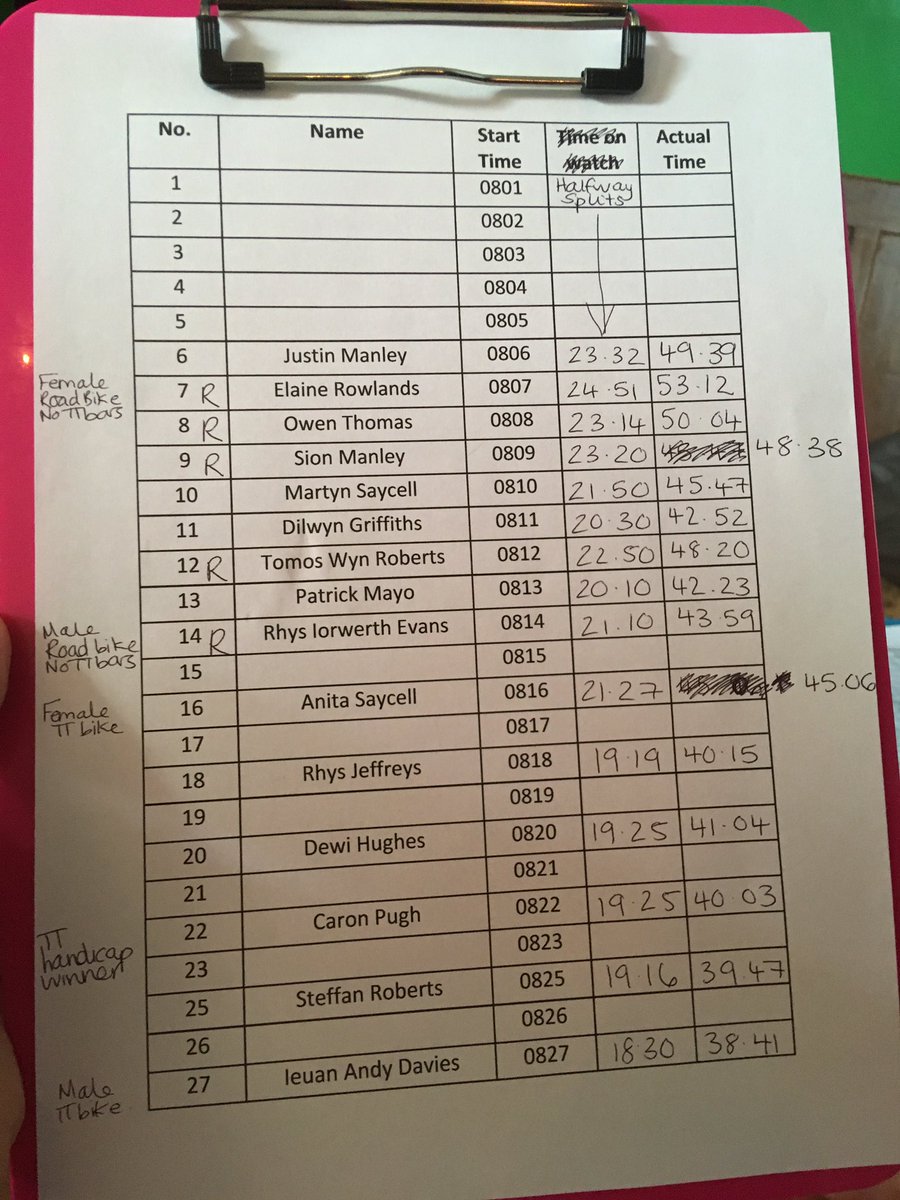 No. Name Start Time Time on watch Actual Time
Halfway Splits
1 0801
2 0802
3 0803
4 0804
5 0805
6 Justin Manley 0806 23.32 49.39
Female Road Bike No TT bars
7 R Elaine Rowlands 0807 24.51 53.12
8 R Owen Thomas 0808 23.14 50.04
9 R Sion Manley 0809 23.20 48.38
10 Martyn Saycell 0810 21.50 45.47
11 Dilwyn Griffiths 0811 20.30 42.52
12 R Tomos Wyn Roberts 0812 22.50 48.20
13 Patrick Mayo 0813 20.10 42.23
Male Road bike No TT bars
14 R Rhys Iorwerth Evans 0814 21.10 43.59
15 0815
Female TT bike
16 Anita Saycell 0816 21.27 45.06
17 0817
18 Rhys Jeffreys 0818 19.19 40.15
19 0819
20 Dewi Hughes 0820 19.25 41.04
21 0821
22 Caron Pugh 0822 19.25 40.03
TT handicap winner
23 0823
25 Steffan Roberts 0825 19.16 39.47
26 0826
27 Ieuan Andy Davies 0827 18.30 38.41
Male TT bike